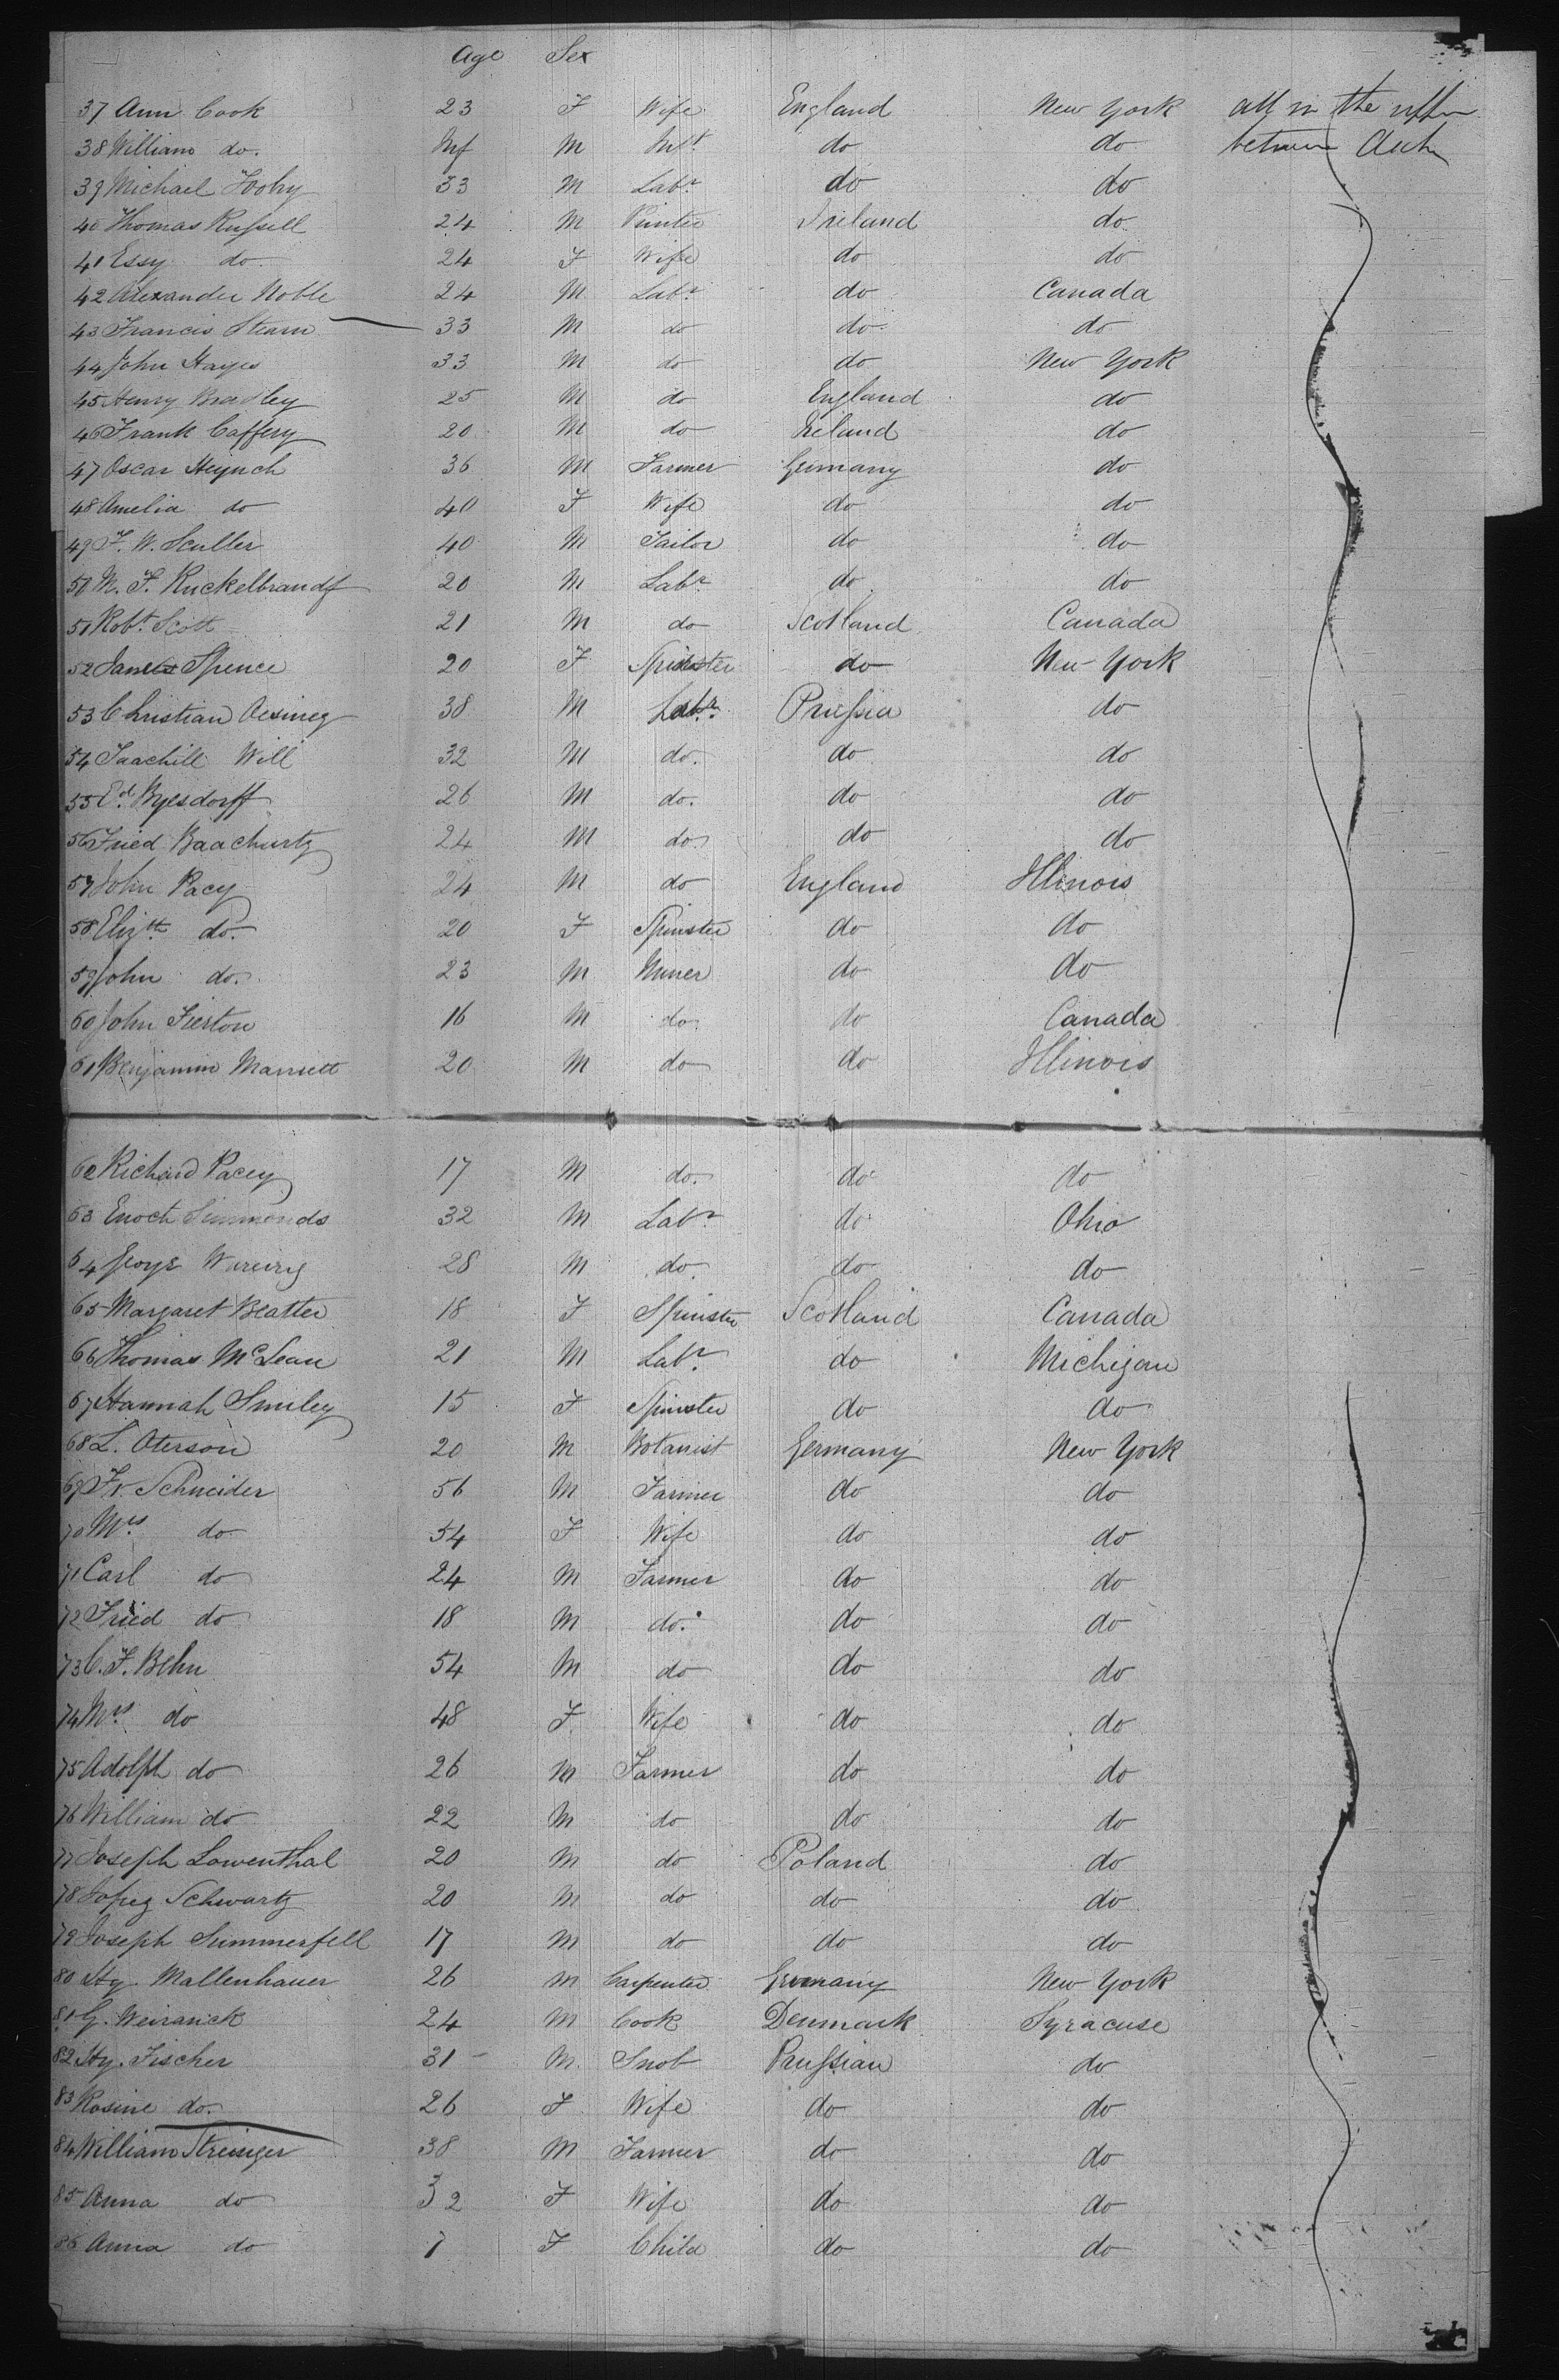 Age Sex
37 Ann Cook 23 F Wife England New York all in the upper
38 William do. Inf M Inft do do between Deck
39 Michael 33 M Labr do do
40 Thomas Russell 24 M Printer Ireland do
41 Essy do 24 F Wife do do
42 Alexander Noble 24 M Labr do Canada
43 Francis Stearn 33 M do do do
44 John Hayes 33 M do do New York
45 Henry Bradley 25 M do England do
46 Frank Caffery 20 M do Ireland do
47 Oscar Heynch 36 M Farmer Germany do
48 Amelia do 40 F Wife do do
49 F. W. Sculler 40 M Tailor do do
50 M. F. Ruckelbrandt 20 M Labr do do
51 Robt Scott 21 M do Scotland Canada
52 Spence 20 F Spinster do New York
53 Christian 38 M Labr. Prussia do
54 Will 32 M do. do do
55 Ed. Byesdorff 26 M do. do do
56 Fried Baachurtz 24 M do. do do
57 John Pacy 24 M do England Illinois
58 Elizth do. 20 F Spinster do do
59 John do. 23 M Miner do do
60 John Fierton 16 M do. do Canada
61 Benjamin Marriett 20 M do do Illinois
62 Richard Pacey 17 M do. do do
63 Enoch Simmonds 32 M Labr do Ohio
64 George Wareing 28 M do do do
65 Margaret Beatter 18 F Spinster Scotland Canada
66 Thomas McLean 21 M Labr. do Michigan
67 Hannah Smiley 15 F Spinster do do
68 L. Oterson 20 M Botanist Germany New York
69 Fr Schneider 56 M Farmer do do
70 Mrs do 54 F Wife do do
71 Carl do 24 M Farmer do do
72 Fried do 18 M do. do do
73 C. F. Behn 54 M do do do
74 Mrs do 48 F. Wife do do
75 Adolph do 26 M Farmer do do
76 William do 22 M do do do
77 Joseph Lowenthal 20 M do Poland do
78 Schwartz 20 M do do do
79 Joseph Summerfell 17 M do do do
80 Hy. Mallenhauer 26 M Carpenter Germany New York
81 G. Weiranck 24 M Cook Denmark Syracuse
82 Hy. Fischer 31 M. Snob Prussian do
83 Rosine do. 26 F Wife do do
84 William Streisiger 38 M Farmer do do
85 Anna do 32 F Wife do do
86 Anna do 7 F Child do do